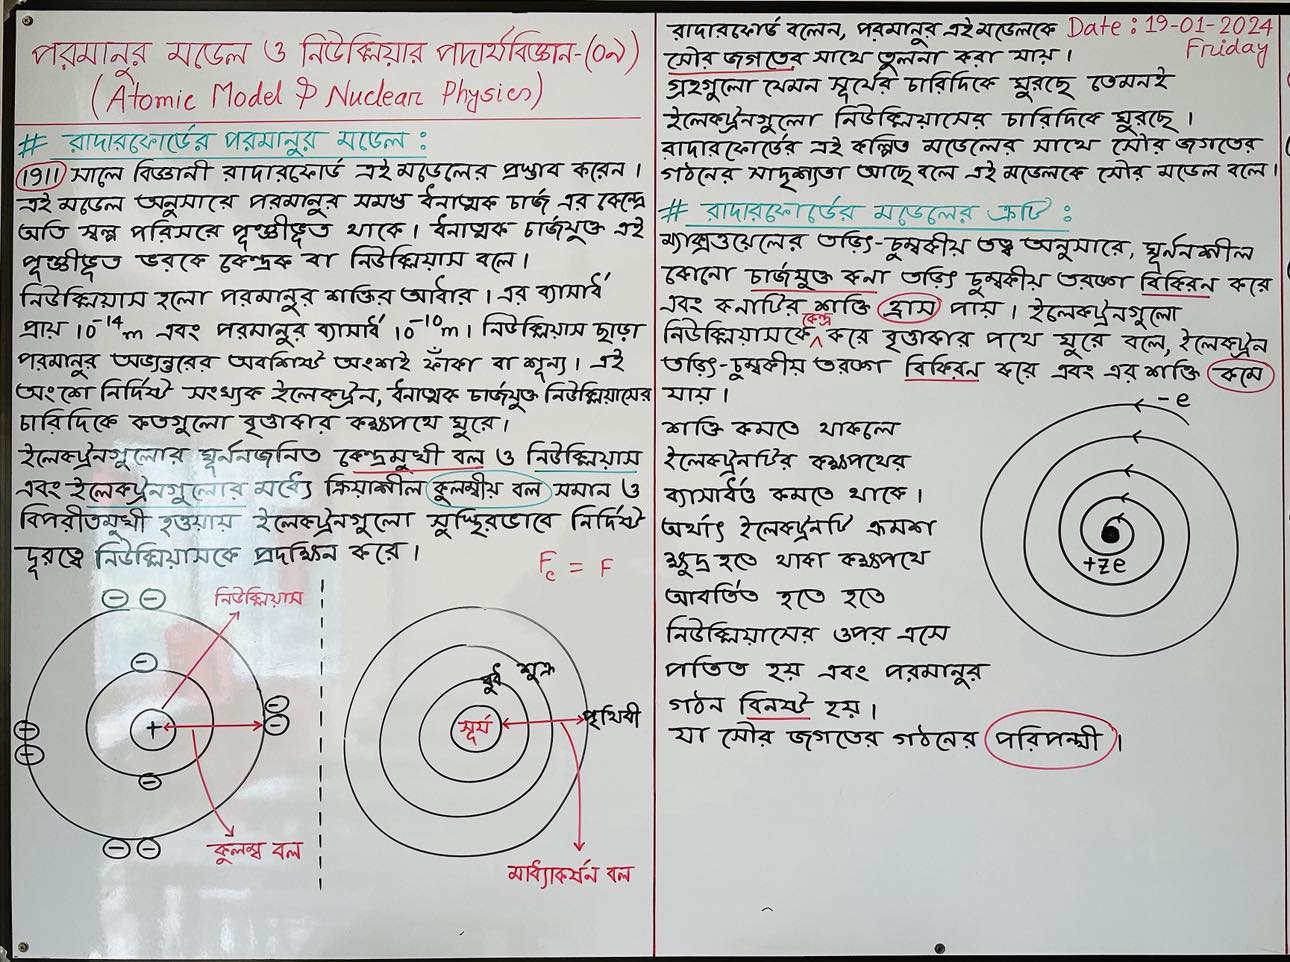 পরমানুর মডেল ও নিউক্লিয়ার পদার্থবিজ্ঞান-(০৯)
(Atomic Model & Nuclear Physics)
# রাদারফোর্ডের পরমানুর মডেল :
1911 সালে বিজ্ঞানী রাদারফোর্ড এই মডেলের প্রস্তাব করেন।
এই মডেল অনুসারে পরমানুর সমস্ত ধনাত্মক চার্জ এর কেন্দ্রে
অতি স্বল্প পরিসরে পুঞ্জীভূত থাকে। ধনাত্মক চার্জযুক্ত এই
পুঞ্জীভূত ভরকে কেন্দ্রক বা নিউক্লিয়াস বলে।
নিউক্লিয়াস হলো পরমানুর শক্তির আধার। এর ব্যাসার্ধ
প্রায় 10⁻¹⁴m এবং পরমানুর ব্যাসার্ধ 10⁻¹⁰m। নিউক্লিয়াস ছাড়া
পরমানুর অভ্যন্তরের অবশিষ্ট অংশই ফাঁকা বা শূন্য। এই
অংশে নির্দিষ্ট সংখ্যক ইলেকট্রন, ধনাত্মক চার্জযুক্ত নিউক্লিয়াসের
চারিদিকে কতগুলো বৃত্তাকার কক্ষপথে ঘুরে।
ইলেকট্রনগুলোর ঘূর্ননজনিত কেন্দ্রমুখী বল ও নিউক্লিয়াস
এবং ইলেকট্রনগুলোর মধ্যে ক্রিয়াশীল কুলম্বীয় বল সমান ও
বিপরীতমুখী হওয়ায় ইলেকট্রনগুলো সুস্থিরভাবে নির্দিষ্ট
দূরত্বে নিউক্লিয়াসকে প্রদক্ষিন করে।
Fc = F
নিউক্লিয়াস
− −
−
+
− −
− −
−
− −
কুলম্ব বল
বুধ শুক্র
সূর্য
পৃথিবী
মাধ্যাকর্ষন বল
রাদারফোর্ড বলেন, পরমানুর এই মডেলকে
Date : 19-01-2024
Friday
সৌর জগতের সাথে তুলনা করা যায়।
গ্রহগুলো যেমন সূর্যের চারিদিকে ঘুরছে তেমনই
ইলেকট্রনগুলো নিউক্লিয়াসের চারিদিকে ঘুরছে।
রাদারফোর্ডের এই কল্পিত মডেলের সাথে সৌর জগতের
গঠনের সাদৃশ্যতা আছে বলে এই মডেলকে সৌর মডেল বলে।
# রাদারফোর্ডের মডেলের ত্রুটি :
ম্যাক্সওয়েলের তড়িৎ-চুম্বকীয় তত্ত্ব অনুসারে, ঘূর্ননশীল
কোনো চার্জযুক্ত কনা তড়িৎ চুম্বকীয় তরঙ্গ বিকিরন করে
এবং কনাটির শক্তি হ্রাস পায়। ইলেকট্রনগুলো
নিউক্লিয়াসকে কেন্দ্র করে বৃত্তাকার পথে ঘুরে বলে, ইলেকট্রন
তড়িৎ-চুম্বকীয় তরঙ্গ বিকিরন করে এবং এর শক্তি কমে
যায়।
শক্তি কমতে থাকলে
ইলেকট্রনটির কক্ষপথের
ব্যাসার্ধও কমতে থাকে।
অর্থাৎ ইলেকট্রনটি ক্রমশ
ক্ষুদ্র হতে থাকা কক্ষপথে
আবর্তিত হতে হতে
নিউক্লিয়াসের ওপর এসে
পতিত হয় এবং পরমানুর
গঠন বিনষ্ট হয়।
যা সৌর জগতের গঠনের পরিপন্থী।
-e
+ze